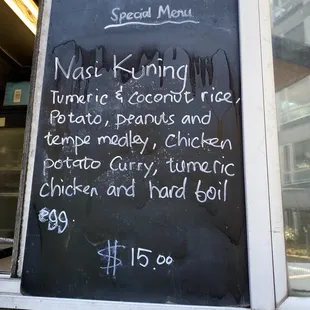 Special Menu
Nasi Kuning
Tumeric & coconut rice,
Potato, peanuts and
tempe medley, chicken
potato curry, tumeric
chicken and hard boil
egg.
$ 15.00